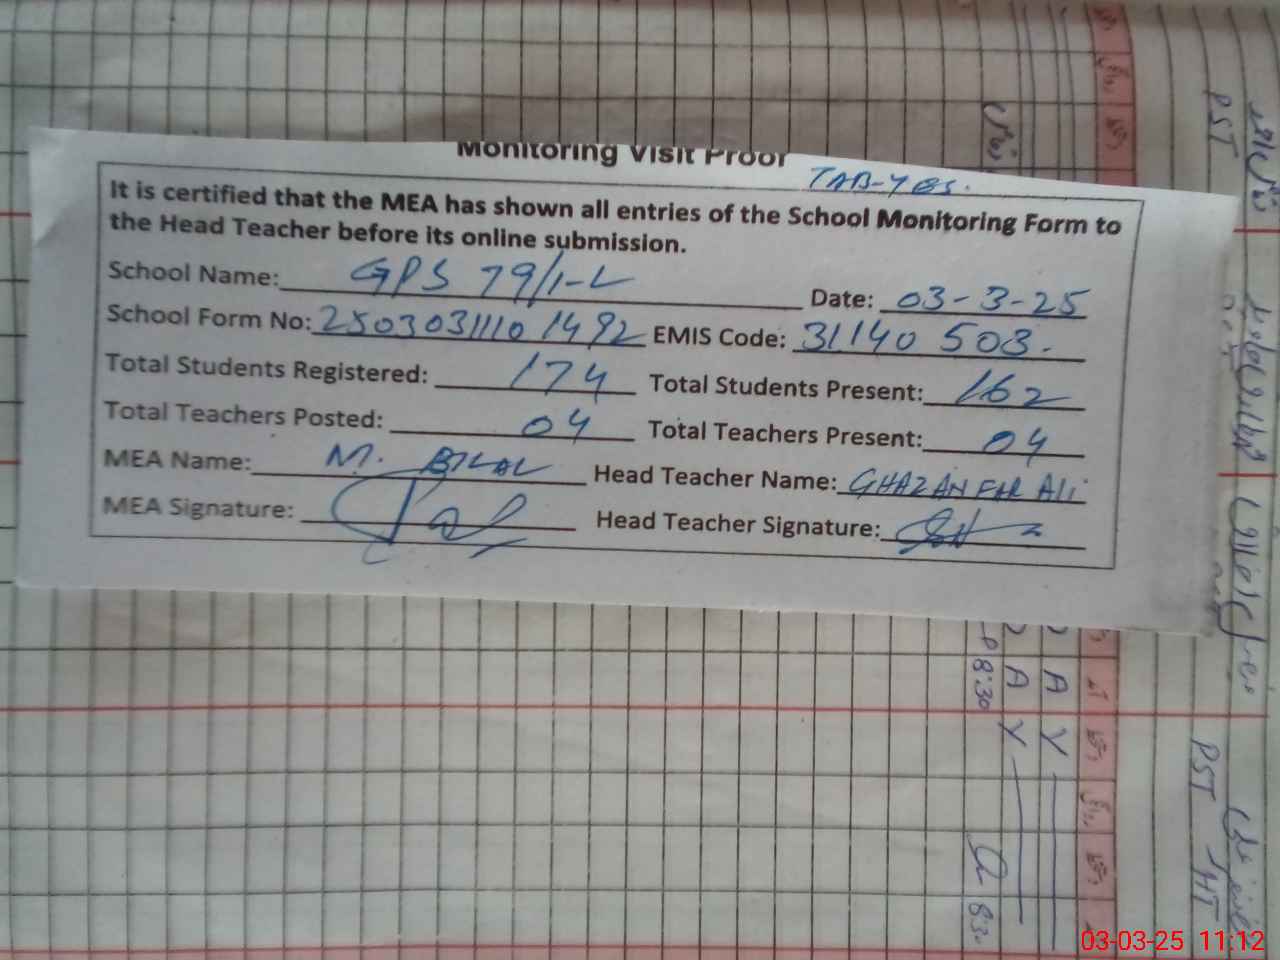 Monitoring Visit Proof
TAB-Yes.
It is certified that the MEA has shown all entries of the School Monitoring Form to
the Head Teacher before its online submission.
School Name: GPS 79/1-L Date: 03-3-25
School Form No: 25030311101492 EMIS Code: 31140 503.
Total Students Registered: 174 Total Students Present: 162
Total Teachers Posted: 04 Total Teachers Present: 04
MEA Name: M. BILAL Head Teacher Name: GHAZANFAR Ali
MEA Signature: Head Teacher Signature:
PST
P 8:30
D A Y
D A Y
PST
HT
8:30
03-03-25 11:12